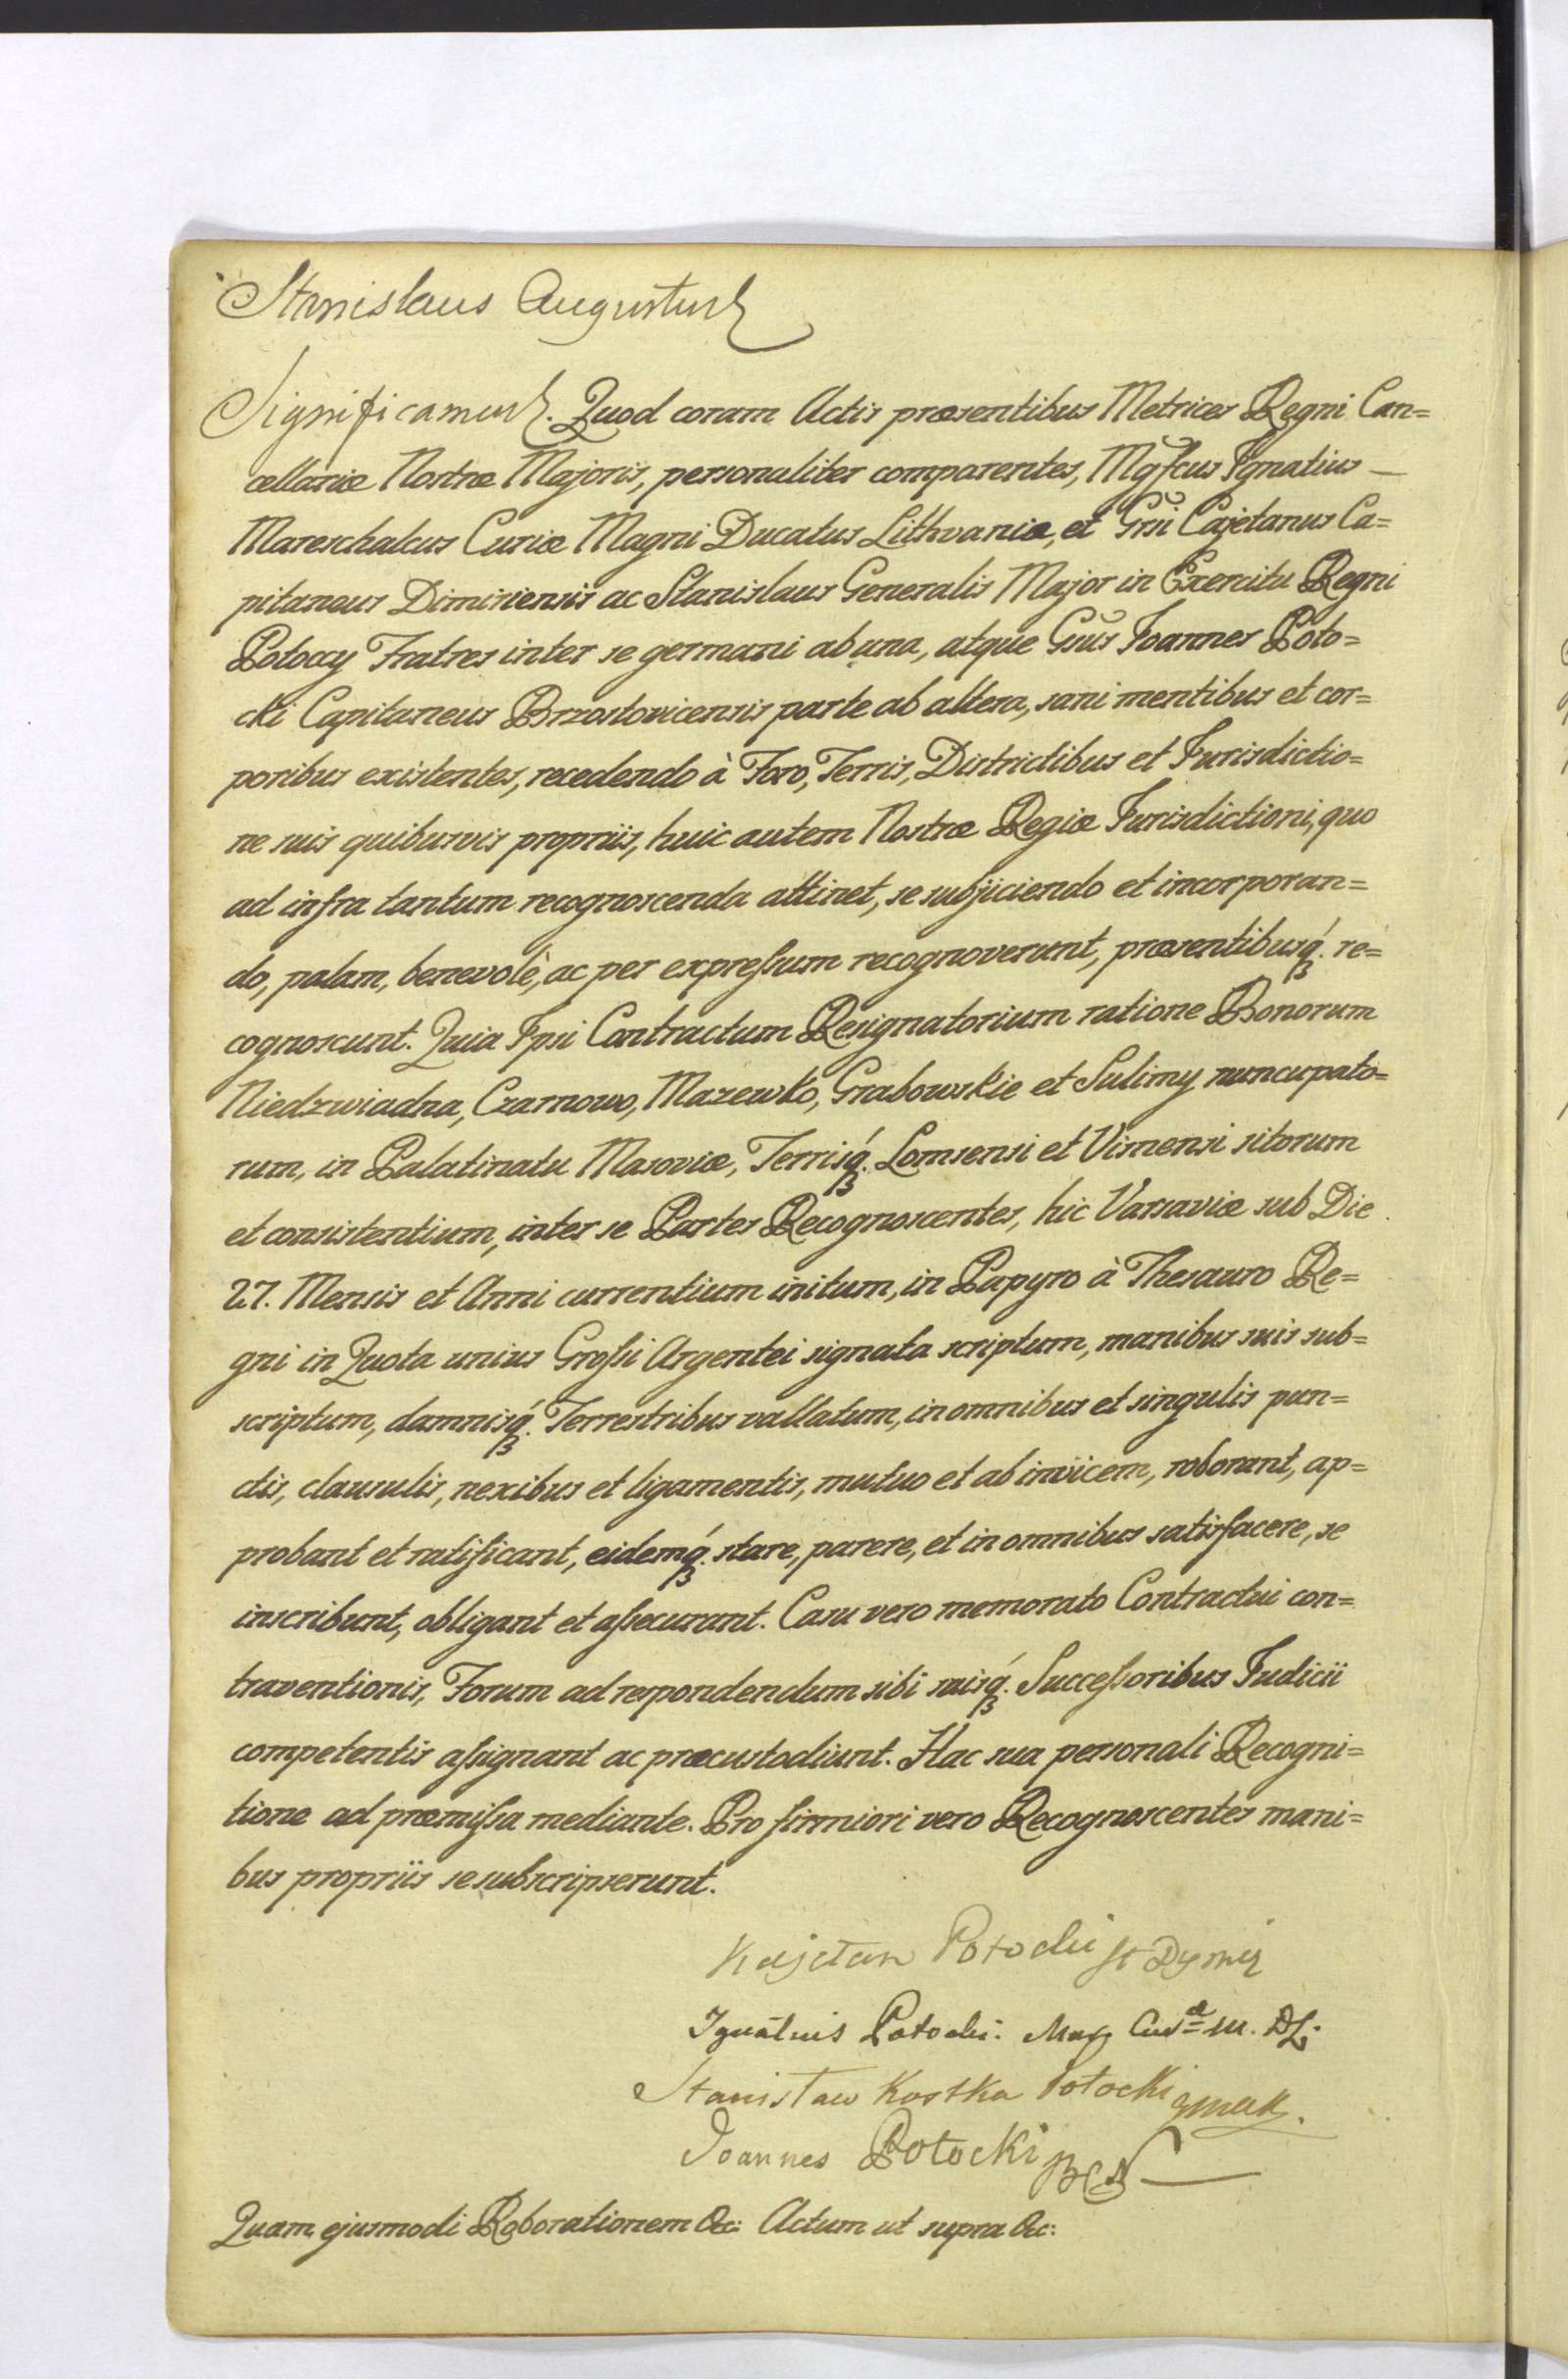 Stanislaus Augustus
Significamus. Quod coram Actis præsentibus Metrices Regni Can=
cellariæ Nostræ Majoris, personaliter comparentes, Mgfcus Ignatius —
Mareschalcus Curiæ Magni Ducatus Lithvaniæ, et Grsi Cajetanus Ca=
pitaneus Dimiriensis ac Stanislaus Generalis Major in Exercitu Regni
Potoccy Fratres inter se germani ab una, atque Gsus Joannes Poto=
cki Capitaneus Brzostovicensis parte ab altera, sani mentibus et cor=
poribus existentes, recedendo à Foro, Terris, Districtibus et Jurisdictio=
ne suis quibusvis propriis, huic autem Nostræ Regiæ Jurisdictioni, quo
ad infra tantum recognoscenda attinet, se subjiciendo et incorporan=
do, palam, benevolè, ac per expressum recognoverunt, præsentibusq́. re=
cognoscunt. Quia Ipsi Contractum Resignatorium ratione Bonorum
Niedzwiadna, Czarnowo, Mazewko, Grabowskie et Sulimy nuncupato=
rum, in Palatinatu Masoviæ, Terrisq́. Lomsensi et Visnensi sitorum
et consistentium, inter se Partes Recognoscentes, hic Varsaviæ sub Die
27. Mensis et Anni currentium initum, in Papyro à Thesauro Re=
gni in Quota unius Grossi Argentei signata scriptum, manibus suis sub=
scriptum, damnisq́. Terrestribus vallatum, in omnibus et singulis pun=
ctis, clausulis, nexibus et ligamentis, mutuo et ab invicem, roborant, ap=
probant et ratificant, eidemq́. stare, parere, et in omnibus satisfacere, se
inscribunt, obligant et assecurant. Casu vero memorato Contractui con=
traventionis, Forum ad respondendum sibi suisq́. Successoribus Judicii
competentis assignant ac præcustodiunt. Hac sua personali Recogni=
tione ad præmissa mediante. Pro firmiori vero Recognoscentes mani=
bus propriis se subscripserunt.
Kajetan Potocki St Dymir
Ignatius Potocki. Mar Cur M. DL.
Stanisław Kostka Potocki
Joannes Potocki
Quam ejusmodi Roborationem &c: Actum ut supra &c: